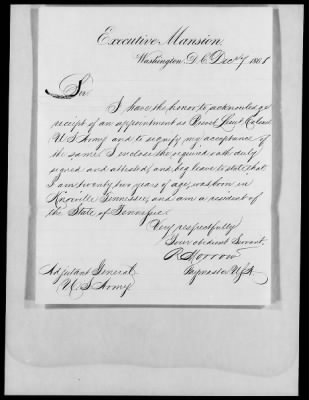 Executive Mansion.
Washington, D.C. Dec 17 1868
Sir
I have the honor to acknowledge
receipt of an appointment as Brevet Lieut Colonel
U S Army and to signify my acceptance of
the same. I enclose the required oath duly
signed and attested, and beg leave to state that
I am twenty two years of age, was born in
Knoxville Tennessee, and am a resident of
the State of Tennessee.
Very respectfully
Your obedient Servant,
R Morrow
Paymaster U.S.A.
Adjutant General
U. S Army